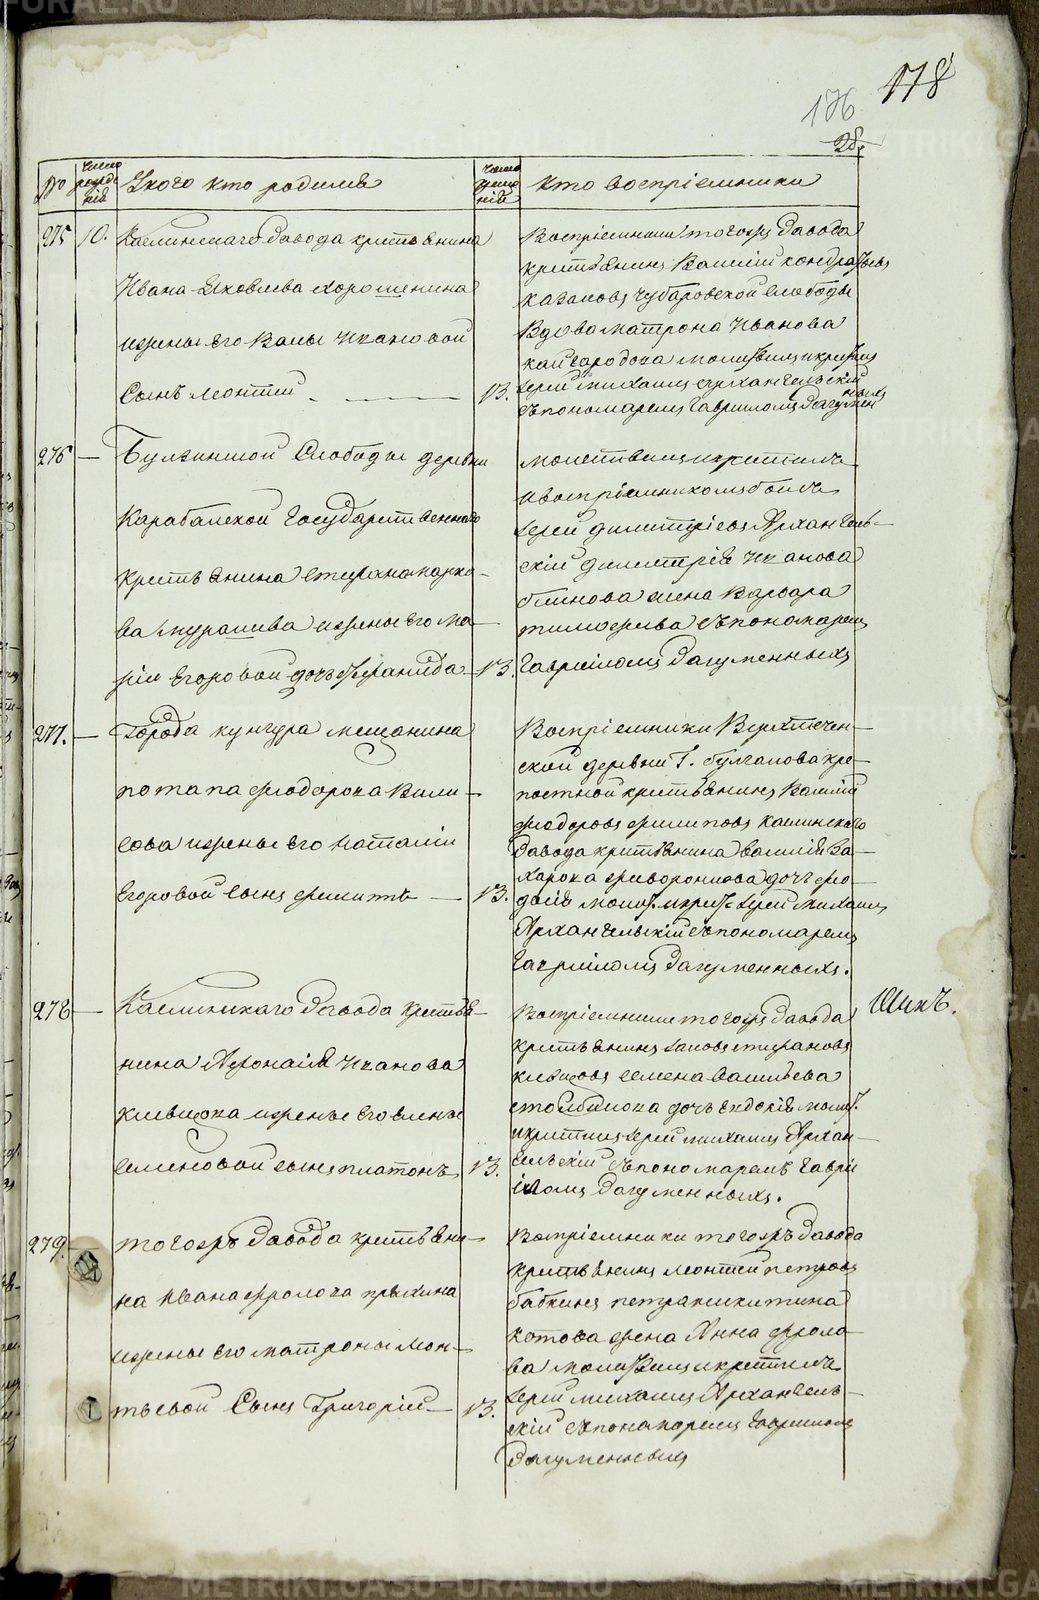 178
176
№ Число рожденій У кого кто родился
Число крещеній Кто воспріемники
275 10. Каслинскаго завода крестьянина
Ивана Яковлева Хорошенина
и жены его Васы Ивановой
Сынъ Леонтій 13.
Воспріемники тогожъ завода
крестьянинъ Василій Кондратьевъ
Казаковъ Чубаровской слободы
Вдова Матрона Иванова
Кайгародова молитвилъ и крестилъ
Іерей Михаилъ Архангельскій
съ пономаремъ Гавріиломъ Догуменныхъ
276 — Булзинской Слободы деревни
Карабаевской Государственнаго
крестьянина Стефана Марко-
ва Мурашева и жены его Ма-
ріи Егоровой дочь 13.
молитвилъ и крестилъ
и воспріемникомъ былъ
Іерей Димитрій Архангель-
скій Димитрія Иванова
Блинова жена Варвара
Тимофеева съ пономаремъ
Гавріиломъ Догуменныхъ
277. — Города Кунгура мещанина
Потапа Феодорова Вили-
сова и жены его Наталіи
Егоровой сынъ Филиппъ — 13.
Воспріемники Верхтечен-
ской деревни Г. Булгакова кре-
постной крестьянинъ Василій
Феодоровъ Филиповъ Каслинскаго
Завода крестьянина Василія За-
харова Фиворонкова дочь Фео-
досія молит. и крест. Іерей Михаилъ
Архангельскій съ пономаремъ
Гавріиломъ Догуменныхъ.
278 — Каслинскаго Завода крестья-
нина Афонасія Иванова
Клевцова и жены его Елены
Семеновой сынъ Платонъ 13.
Воспріемники тогожъ завода
крестьянинъ Іаковъ Стефановъ
Клевцовъ Семена Васильева
Столбикова дочь Евдокія молит.
и крестилъ Іерей Михаилъ Архан-
гельскій съ пономаремъ Гаврі-
иломъ Догуменныхъ.
279. — Тогожъ Завода крестьяни-
на Ивана Фролова Пряхина
и жены его Матроны Леон-
тьевой Сынъ Григорій — 13.
Воспріемники тогожъ Завода
крестьянинъ Леонтій Петровъ
Бабкинъ Петра Никитина
Котова жена Анна Фроло-
ва молитвилъ и крестилъ
Іерей Михаилъ Архангель-
скій съ пономаремъ Гавріиломъ
Догуменныхъ
METRIKI.GASO-URAL.RU